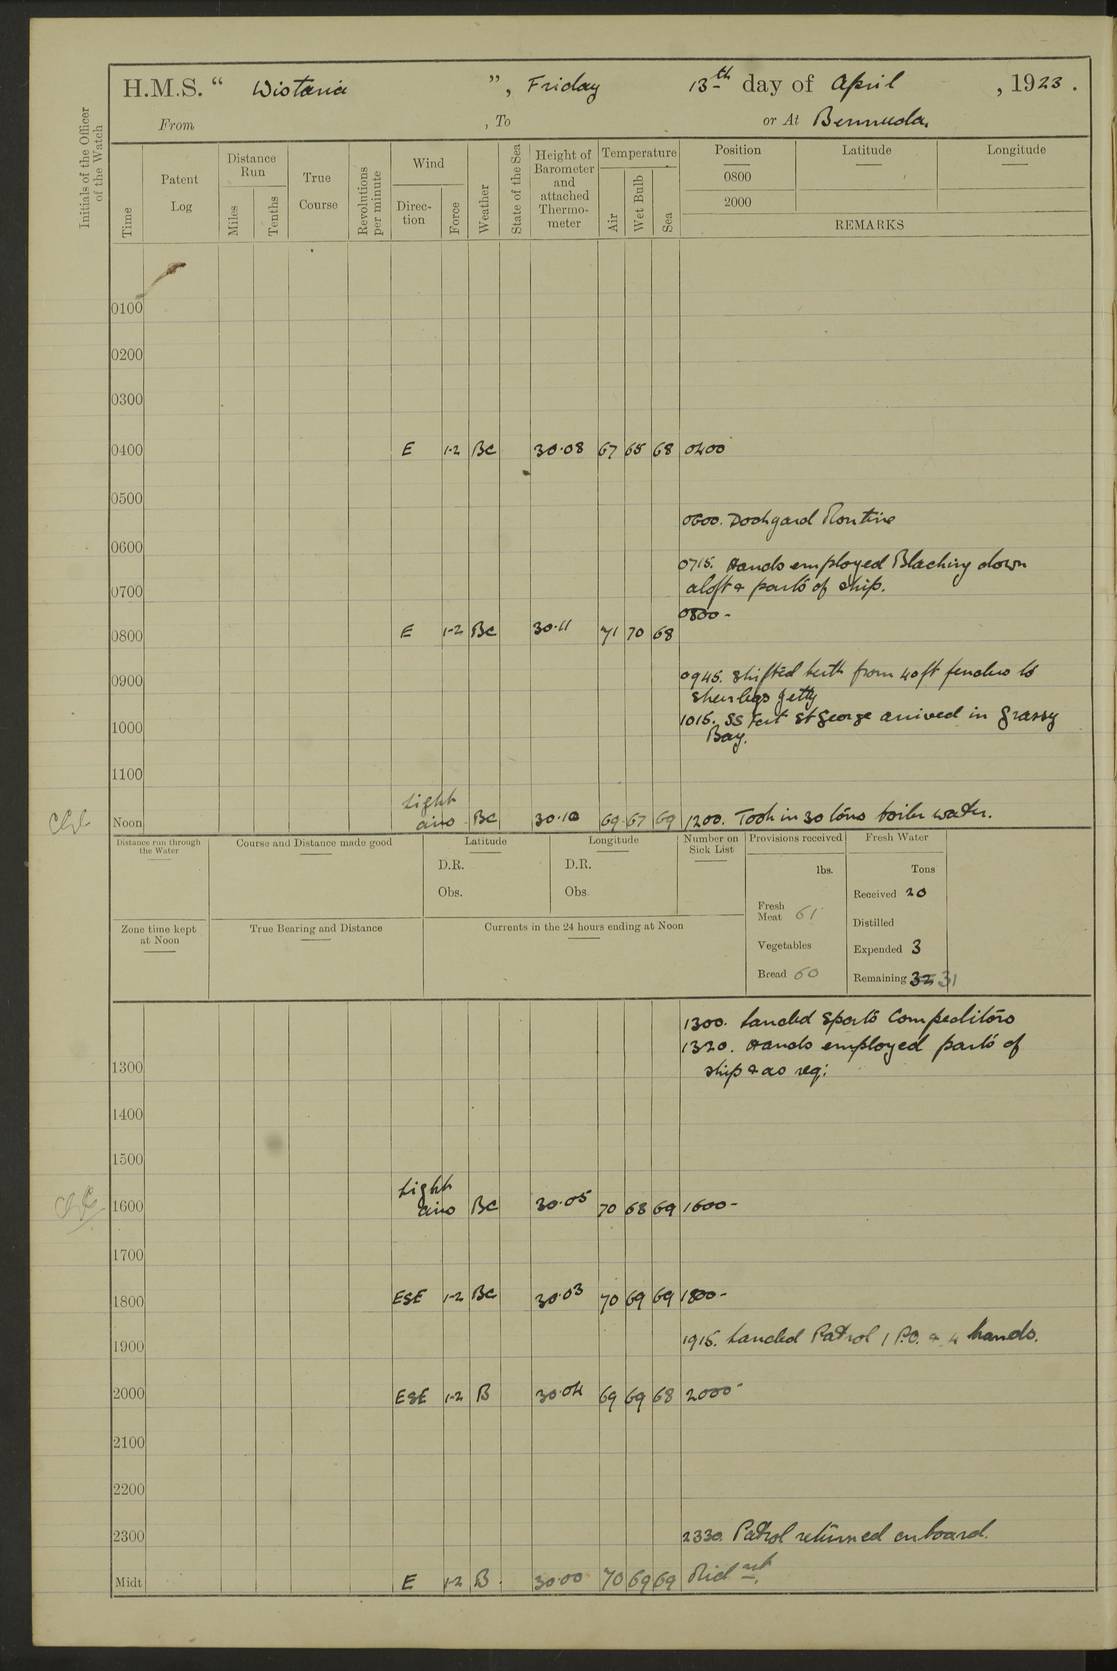 H.M.S. " Wistaria ", Friday 13th day of April, 1923.
From , To or At Bermuda.
Initials of the Officer of the Watch
Time
Patent Log
Distance Run
Miles
Tenths
True Course
Revolutions per minute
Wind
Direc-tion
Force
Weather
State of the Sea
Height of Barometer and attached Thermo-meter
Temperature
Air
Wet Bulb
Sea
Position Latitude Longitude
0800
2000
REMARKS
0100
0200
0300
0400 E 1-2 BC 30·08 67 65 68 0400
0500
0600. Dockyard Routine
0600
0715. Hands employed Blacking down
0700 aloft & parts of ship.
0800 -
0800 E 1-2 BC 30·11 71 70 68
0900
0945. Shifted berth from 40ft fender to
Sheerlegs Jetty
1000
1015. SS Fort St George arrived in Grassy
Bay.
1100
Noon Light airs BC 30·10 69 67 69 1200. Took in 30 tons boiler water.
Distance run through the Water
Course and Distance made good
Latitude
D.R.
Obs.
Longitude
D.R.
Obs.
Number on Sick List
Provisions received
lbs.
Fresh Meat 61
Vegetables
Bread 60
Fresh Water
Tons
Received 20
Distilled
Expended 3
Remaining 32 31
Zone time kept at Noon
True Bearing and Distance
Currents in the 24 hours ending at Noon
1300. Landed Sports Competitors
1320. Hands employed parts of
1300 ship & as req:
1400
1500
1600 Light airs BC 30·05 70 68 69 1600 -
1700
1800 ESE 1-2 BC 30·03 70 69 69 1800 -
1915. Landed Patrol 1 P.O. & 4 hands.
1900
2000 ESE 1-2 B 30·04 69 69 68 2000 -
2100
2200
2300 2330. Patrol returned onboard.
Midt E 1-2 B. 30·00 70 69 69 Midnt.